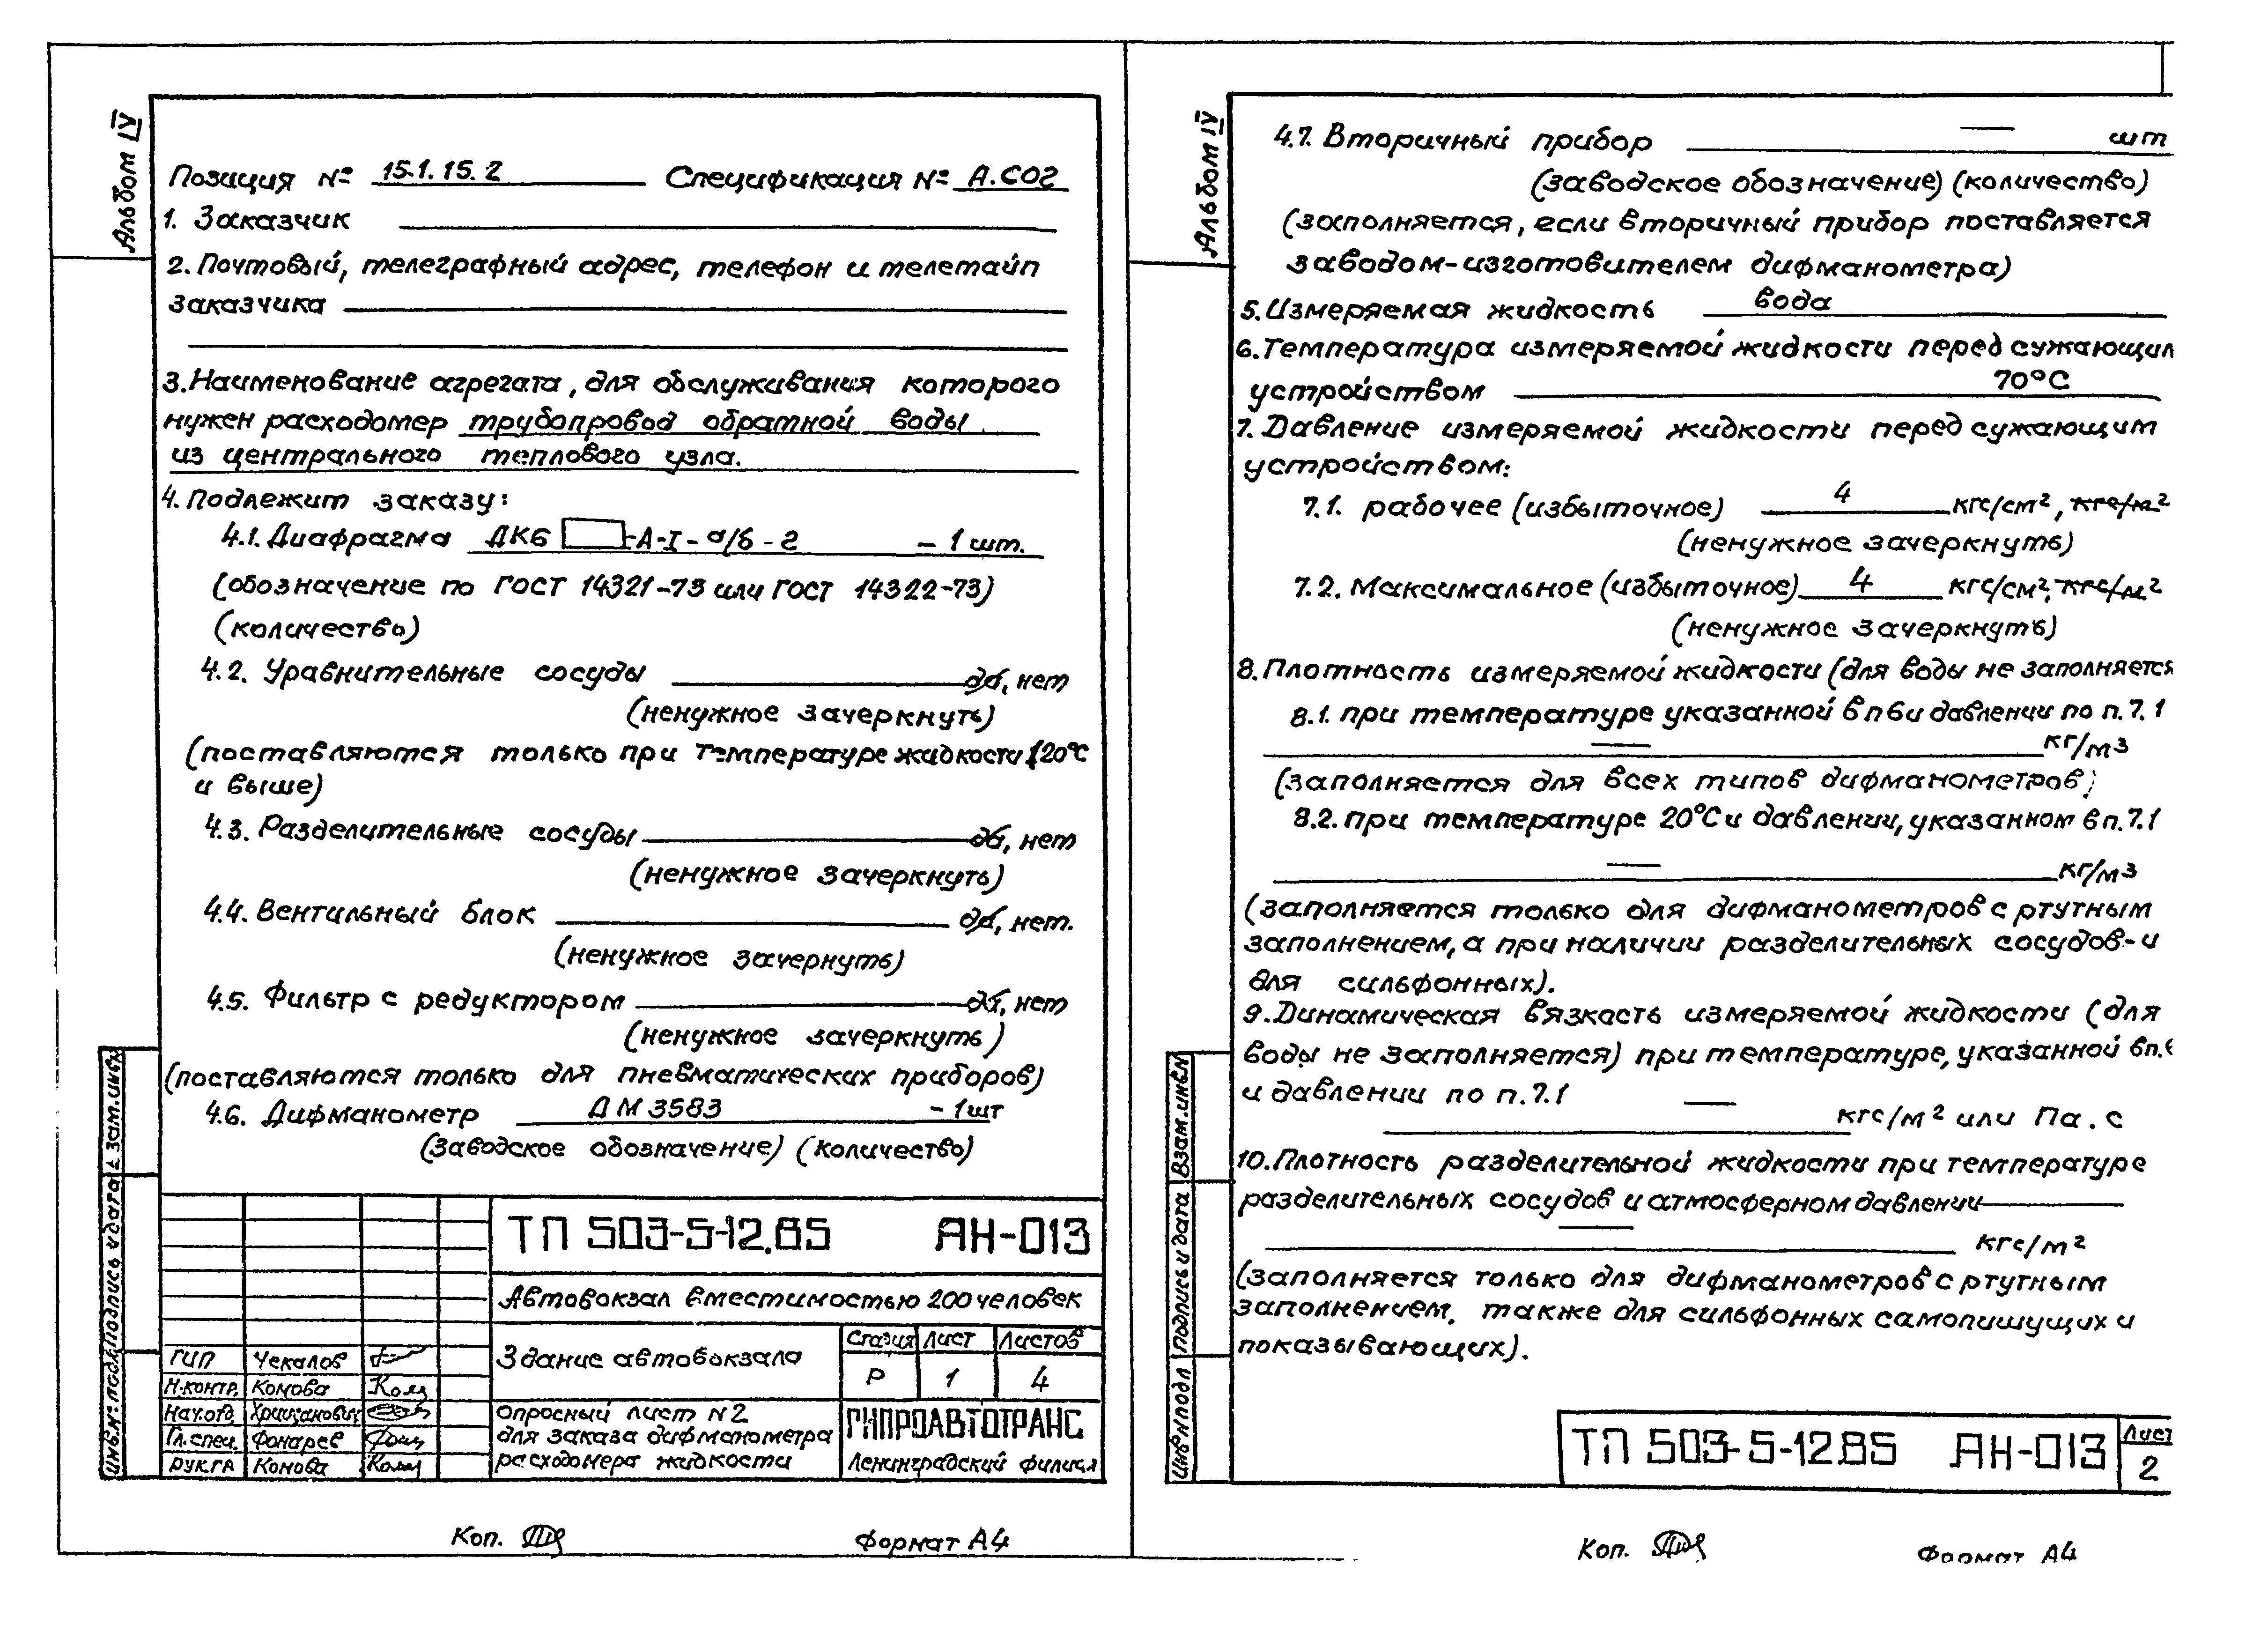 Альбом IV
Позиция № 15.1.15.2 Спецификация № А.СО2
1. Заказчик
2. Почтовый, телеграфный адрес, телефон и телетайп
заказчика
3. Наименование агрегата, для обслуживания которого
нужен расходомер трубопровод обратной воды
из центрального теплового узла.
4. Подлежит заказу:
4.1. Диафрагма ДК6 -А-I-а/б-г - 1 шт.
(обозначение по ГОСТ 14321-73 или ГОСТ 14322-73)
(количество)
4.2. Уравнительные сосуды да, нет
(ненужное зачеркнуть)
(поставляются только при температуре жидкости 120°С
и выше)
4.3. Разделительные сосуды да, нет
(ненужное зачеркнуть)
4.4. Вентильный блок да, нет.
(ненужное зачернуть)
4.5. Фильтр с редуктором да, нет
(ненужное зачеркнуть)
(поставляются только для пневматических приборов)
4.6. Дифманометр ДМ 3583 - 1 шт
(заводское обозначение) (количество)
ТП 503-5-12.85 АН-013
Автовокзал вместимостью 200 человек
Здание автовокзала
Стадия Лист Листов
Р 1 4
ГИП Чекалов
Н.контр. Комова
Нач.отд.
Гл.спец. Фонарев
Рук.гр Комова
Опросный лист N2
для заказа дифманометра
расходомера жидкости
ГИПРОАВТОТРАНС
Ленинградский филиал
Инв.№ подл. Подпись и дата Взам.инв.№
Коп.
Формат А4
Альбом IV
4.7. Вторичный прибор — шт
(заводское обозначение) (количество)
(заполняется, если вторичный прибор поставляется
заводом-изготовителем дифманометра)
5. Измеряемая жидкость вода
6. Температура измеряемой жидкости перед сужающим
устройством 70°С
7. Давление измеряемой жидкости перед сужающим
устройством:
7.1. рабочее (избыточное) 4 кгс/см², кгс/м²
(ненужное зачеркнуть)
7.2. Максимальное (избыточное) 4 кгс/см², кгс/м²
(ненужное зачеркнуть)
8. Плотность измеряемой жидкости (для воды не заполняется
8.1. при температуре указанной в п 6 и давлении по п. 7.1
— кг/м³
(заполняется для всех типов дифманометров)
8.2. при температуре 20°С и давлении, указанном в п. 7.1
— кг/м³
(заполняется только для дифманометров с ртутным
заполнением, а при наличии разделительных сосудов - и
для сильфонных).
9. Динамическая вязкасть измеряемой жидкости (для
воды не заполняется) при температуре, указанной в п.
и давлении по п. 7.1 — кгс/м² или Па.с
10. Плотность разделительной жидкости при температуре
разделительных сосудов и атмосферном давлении
— кгс/м²
(заполняется только для дифманометров с ртутным
заполнением, также для сильфонных самопишущих и
показывающих).
ТП 503-5-12.85 АН-013
Лист
2
Инв.№ подл Подпись и дата Взам.инв.№
Коп.
Формат А4